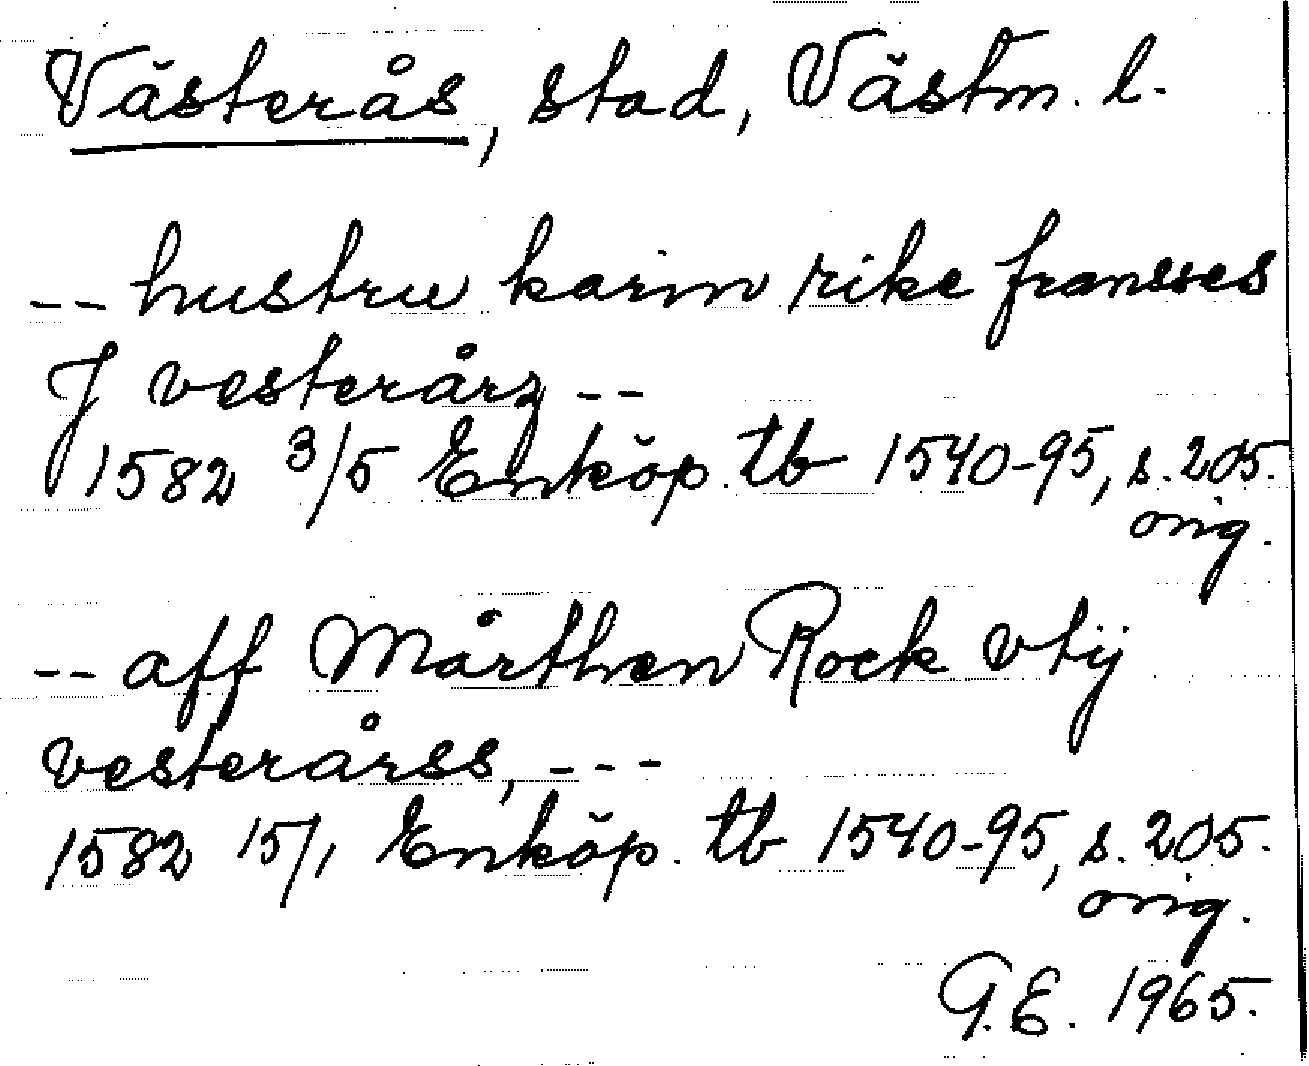 Västerås, stad, Västm. l.
-- hustru karin rike fransses
J vesterårz --
1582 3/5 Enköp. tb 1540-95, s. 205.
orig.
-- aff Mårthen Rock vtij
vesterårss, ---
1582 15/1 Enköp. tb 1540-95, s. 205.
orig.
G.E. 1965.